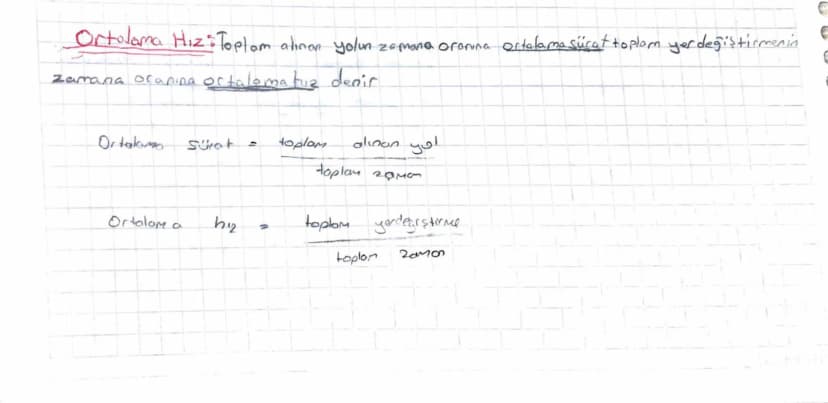 Ortalama Hız: Toplam alınan yolun zamana oranına ortalama sürat toplam yerdeğiştirmenin
zamana oranına ortalama hız denir
Ortalama sürat = toplam alınan yol
toplam zaman
Ortalama hız = toplam yerdeğiştirme
toplam zaman